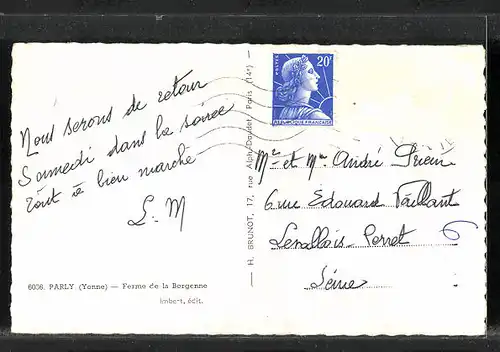 Nous serons de retour
Samedi dans la soirée
Tout à bien marché
L. M
6006. PARLY (Yonne) — Ferme de la Bergenne
Imbert, édit.
— H. BRUNOT, 17, rue Alph.-Daudet, Paris (14e) —
POSTES 20F
REPUBLIQUE FRANÇAISE
Mr et Me André
6 rue Edouard Vaillant
Levallois-Perret
6
Seine